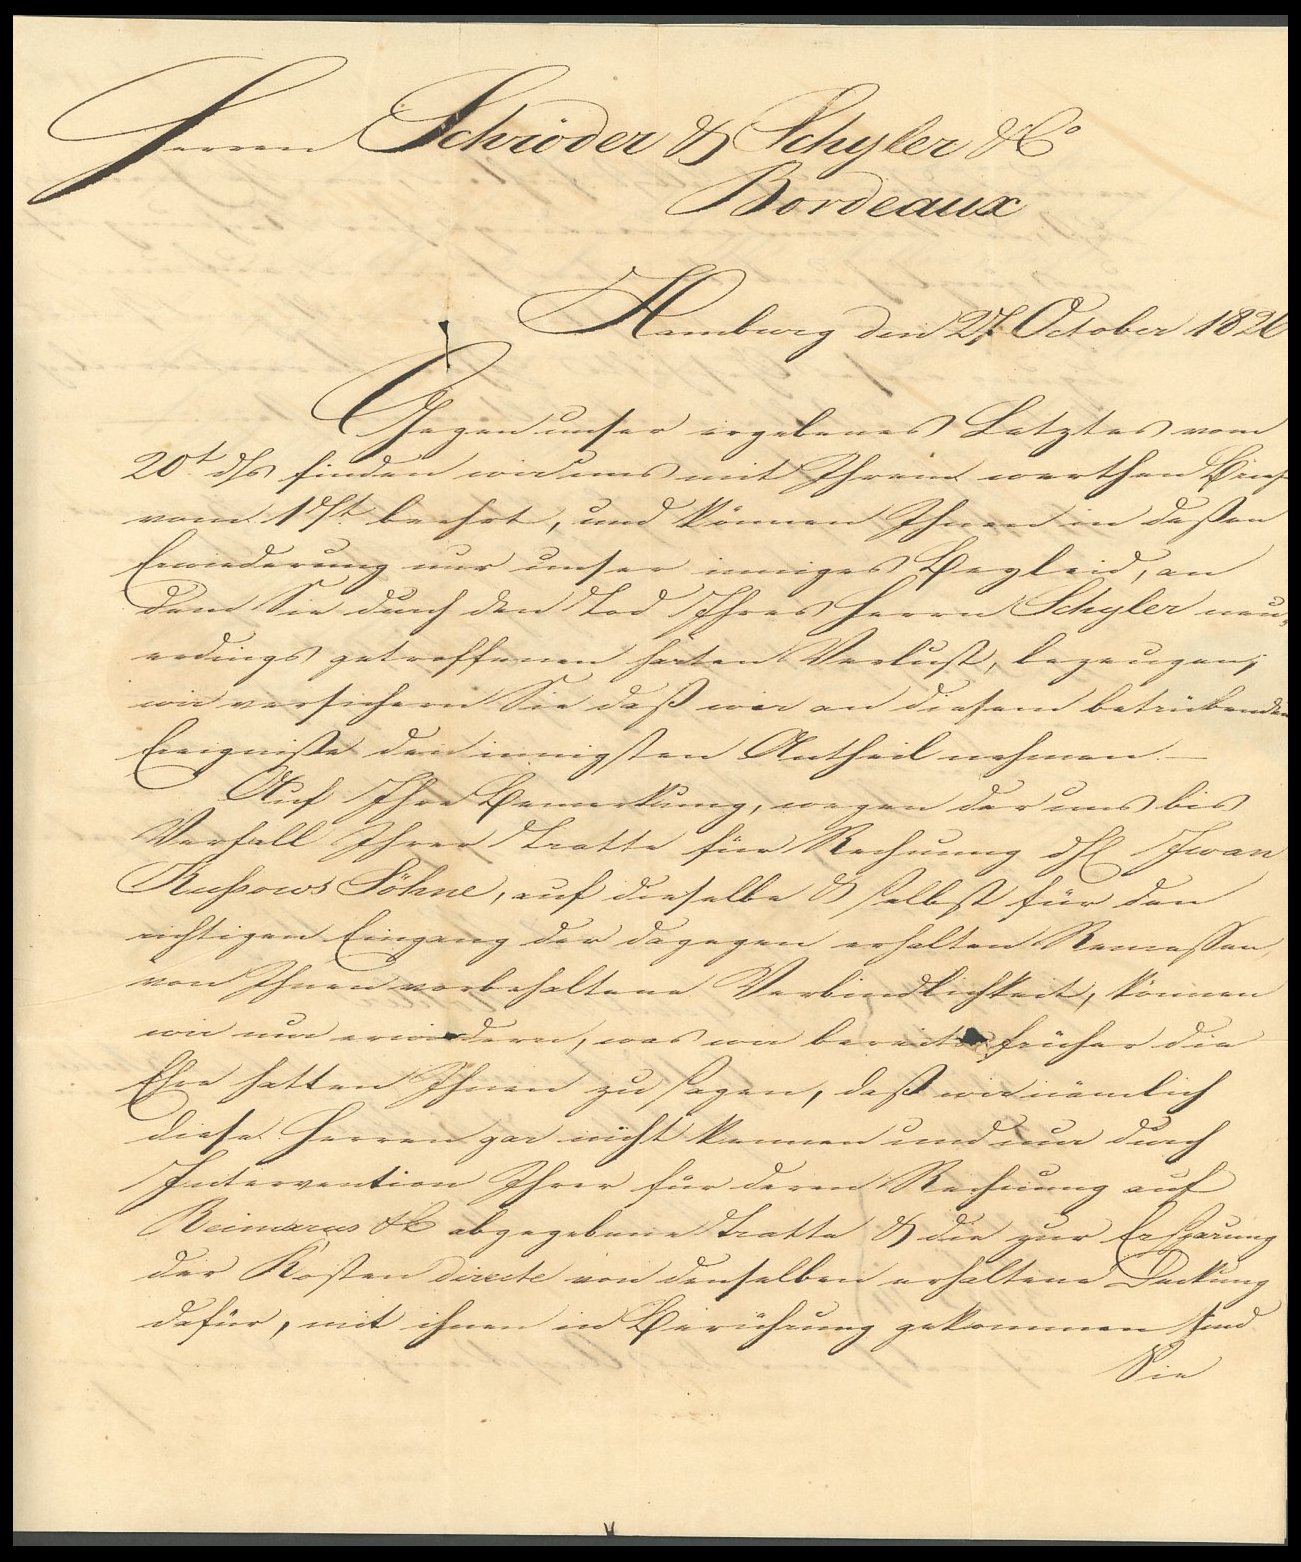 Herren Schröder & Schyler & Co
Bordeaux
Hamburg den 27 October 1826
Gegen unser ergebenes Letztes vom
20t ds finden wir uns mit Ihrem werthen Brief
vom 17t beehrt, und können Ihnen in deßen
Erwiederung nur unser inniges Beyleid, an
dem Sie durch den Tod Ihres Herrn Schyler neu-
erdings getroffenen harten Verlust, bezeugen;
wir versichern Sie daß wir an diesem betrübenden
Ereigniße den innigsten Antheil nehmen. –
Auf Ihre Bemerkung, wegen der uns bis
Verfall Ihrer Tratte für Rechnung dH Iwan
Kußows Söhne, auf dieselbe & selbst für den
richtigen Eingang der dagegen erhalten Remeßen,
von Ihnen vorbehaltene Verbindlichkeit, können
wir nur erwiedern, was wir bereits früher die
Ehre hatten Ihnen zu sagen, daß wir nämlich
diese Herren gar nicht kennen und nur durch
Intervention Ihrer für deren Rechnung auf
Reimarus & C abgegebene Tratte & die zur Ersparung
der Kosten directe von denselben erhaltene Deckung
dafür, mit ihnen in Berührung gekommen sind.
Sie